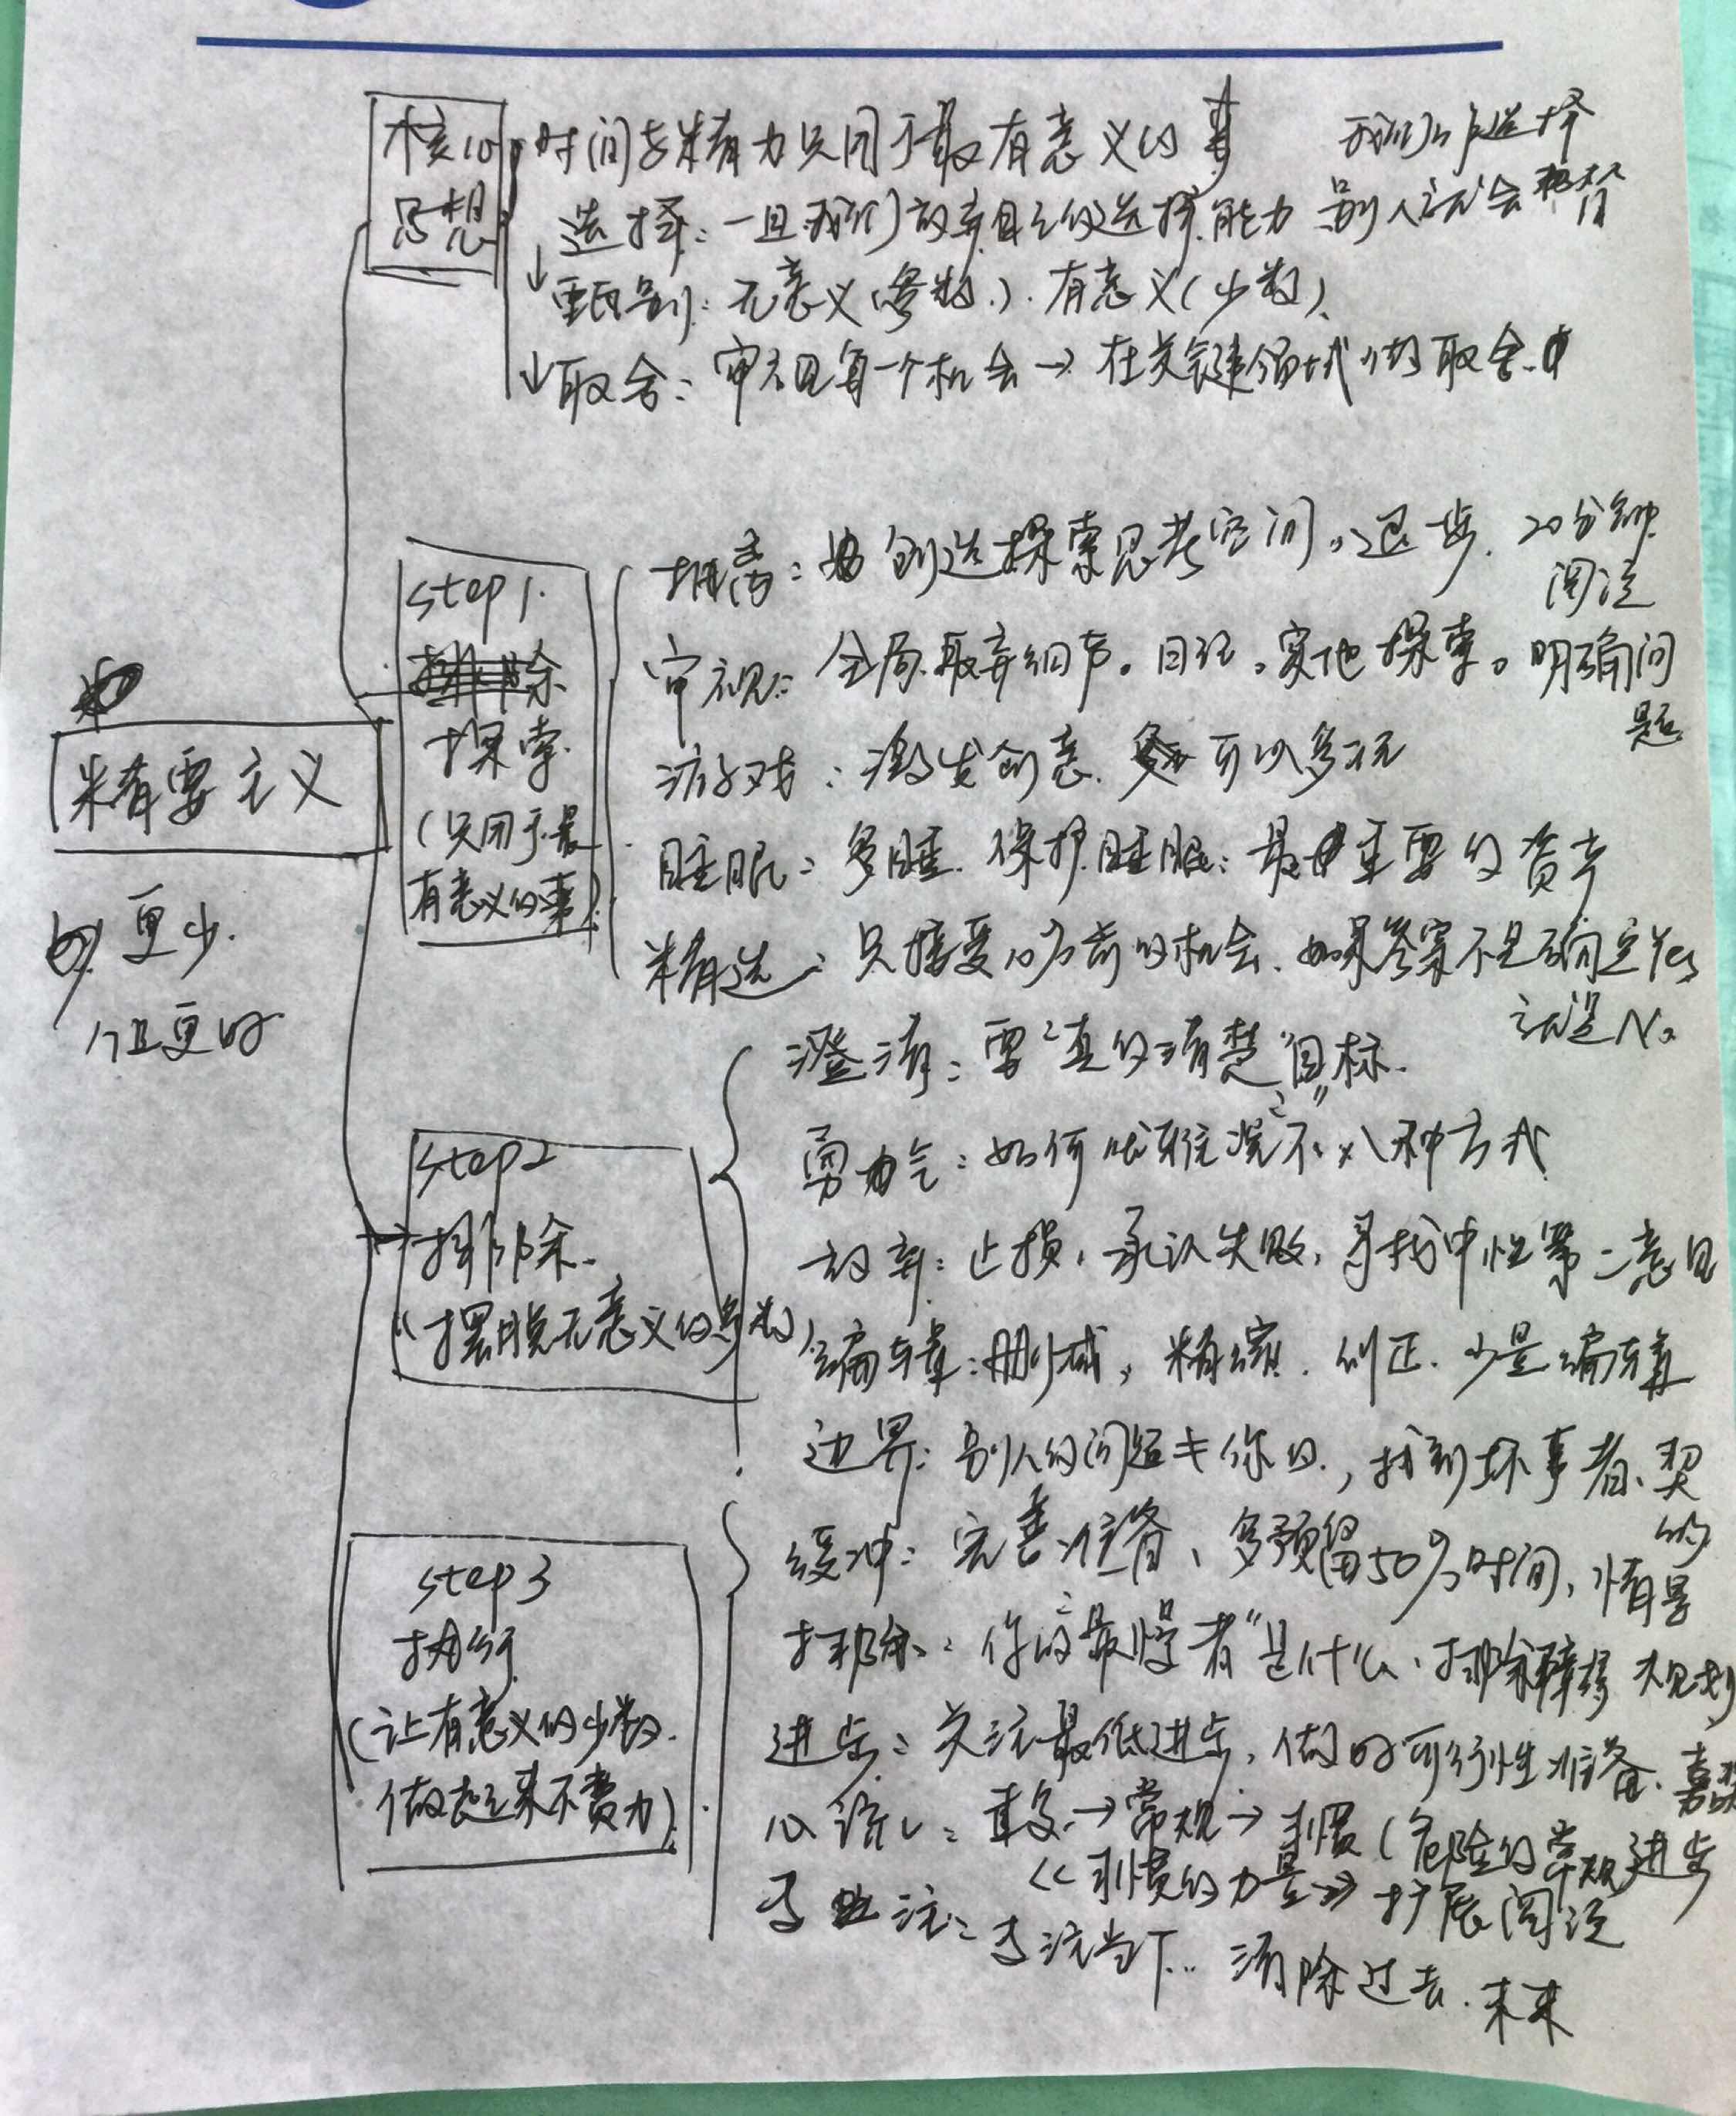 精要主义
更少
但更好
核心
思想
时间与精力只用于最有意义的事
选择：一旦我们放弃自己的选择能力 别人就会
甄别：无意义（多数）．有意义（少数）、
取舍：审视每一个机会→在关键领域做取舍.
step1.
探索.
（只用于最
有意义的事）
抽离：创造探索思考空间。退步. 20分钟
阅读
审视：全局.放弃细节。日记。实地探索。明确问
题
游戏：激发创意. 可以多玩
睡眠：多睡. 保护睡眠：最重要的资产
精选：只接受10%的机会. 如果答案不是确定Yes
就是No
step2
排除.
（摆脱无意义的多数）
澄清：要“真的清楚”目标.
勇气：如何优雅说“不”八种方式
放弃：止损，承认失败，寻找中性第二意见
编辑：删减，精缩. 纠正. 少是编辑
边界：别人的问题≠你的，找到坏事者、契
约
step3
执行.
（让有意义的少数.
做起来不费力）.
缓冲：完善准备、多预留50%时间，情景
规划
排除：你的“最慢者”是什么、排除障碍
进步：关注最低进步，做好可行性准备、嘉奖
进步
心流：重复→常规→习惯（危险的常规
《习惯的力量》扩展阅读
专注：专注当下… 消除过去.未来